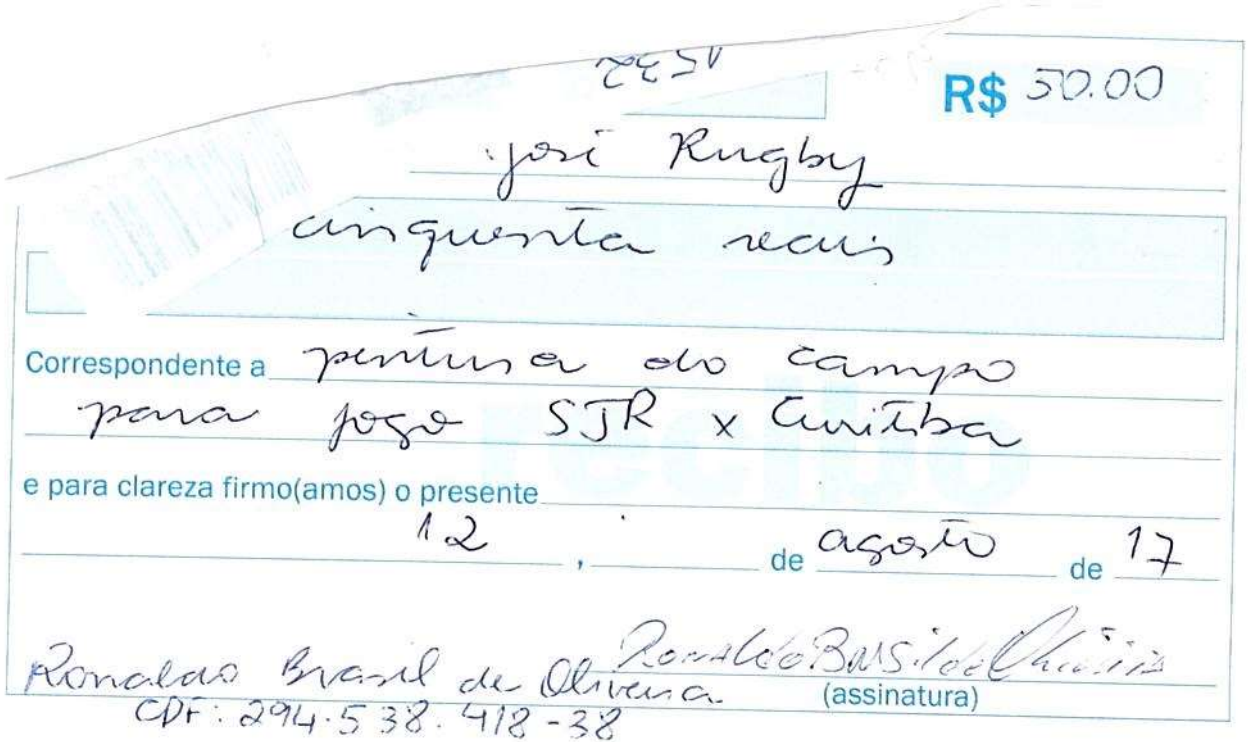 1532
R$ 50.00
José Rugby
cinquenta reais
Correspondente a pintura do campo
para jogo SJR x Curitiba
recibo
e para clareza firmo(amos) o presente
12 , de agosto de 17
Ronaldo Brasil de Oliveira Ronaldo Brasil de Oliveira
(assinatura)
CPF: 294.538.418-38